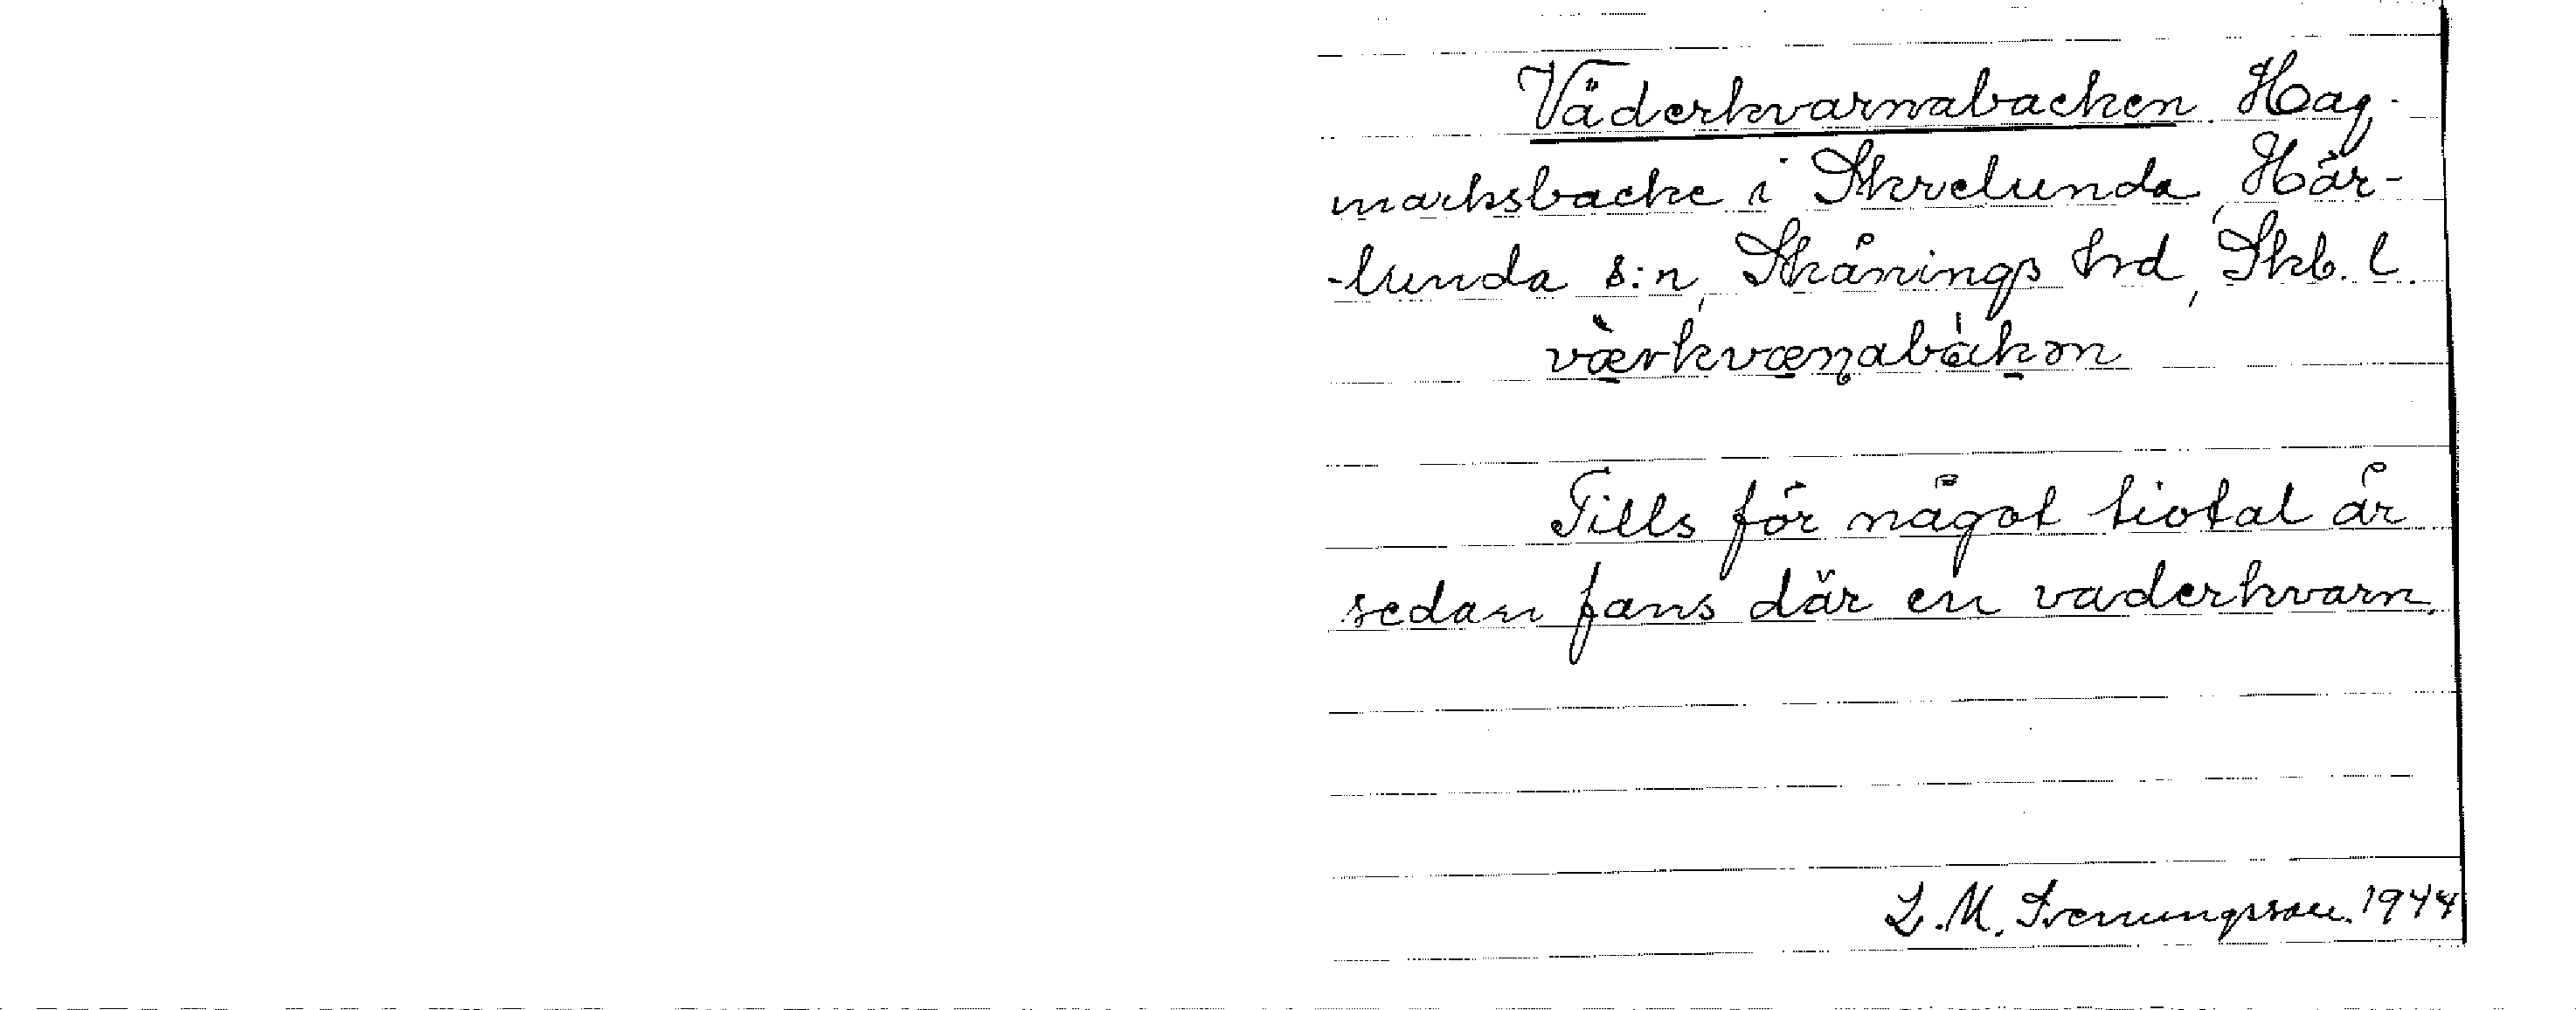 Väderkvarnabacken. Hag-
marksbacke i Skrelunda, Här-
-lunda s:n, Skånings hrd, Skb. l.
vær̀kvæɳabákən
Tills för något tiotal år
sedan fans där en vaderkvarn.
L. M. Svenungsson. 1944